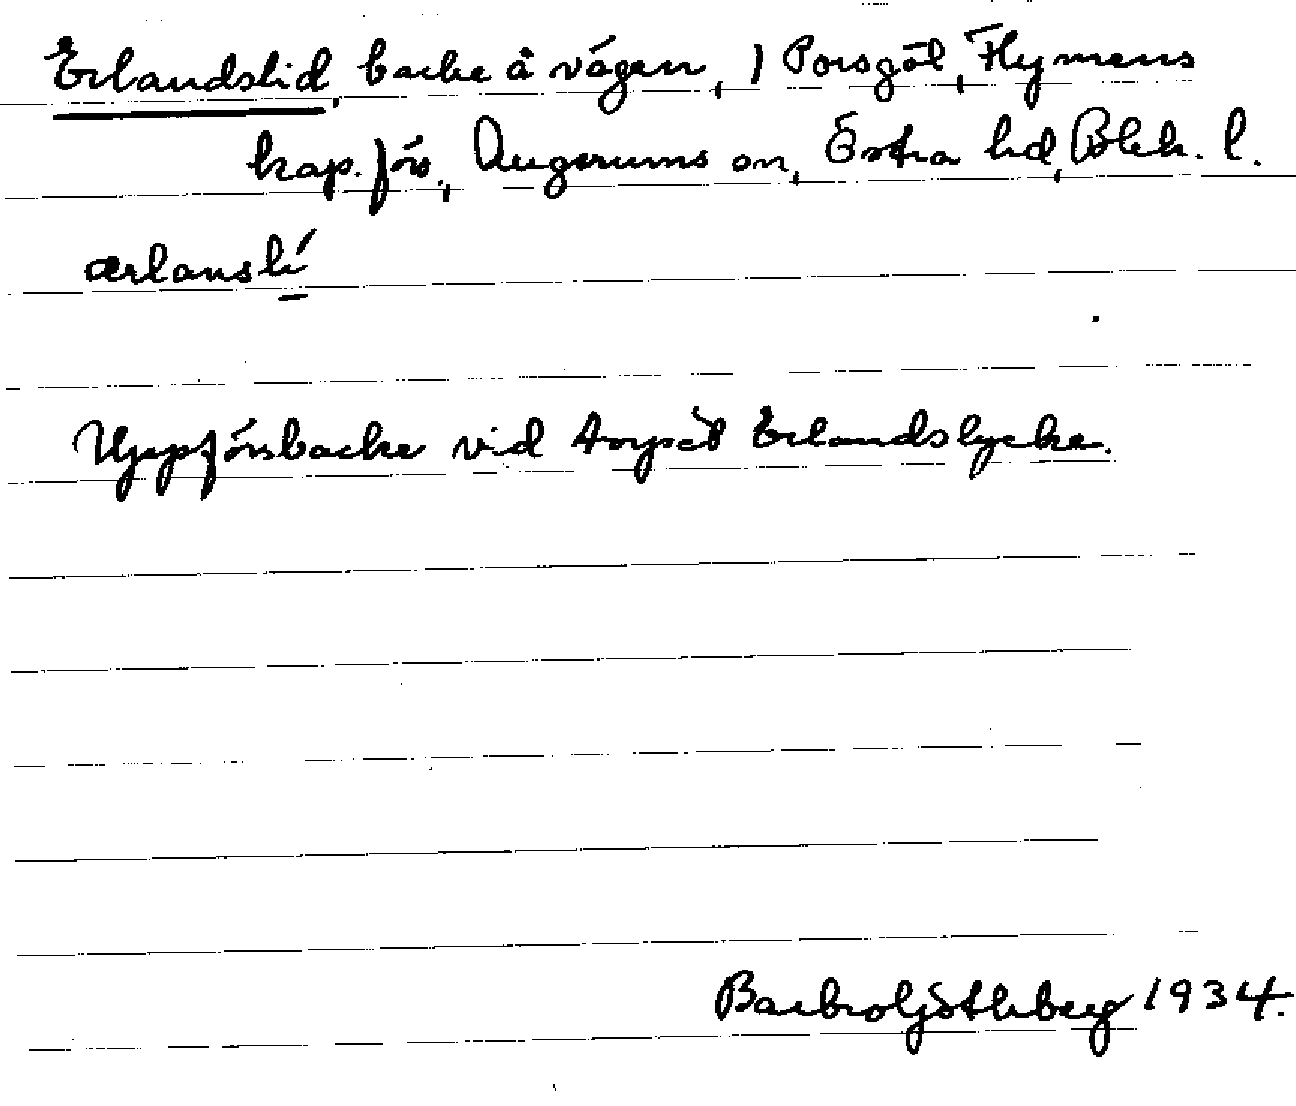 Erlandslid, backe å vägen, 1 Porsgöl, Flymens
kap.förs., Augerums sn, Östra hd, Blek. l.
ærlanslí
Uppförsbacke vid torpet Erlandslycke.
Barbro Götheberg 1934.